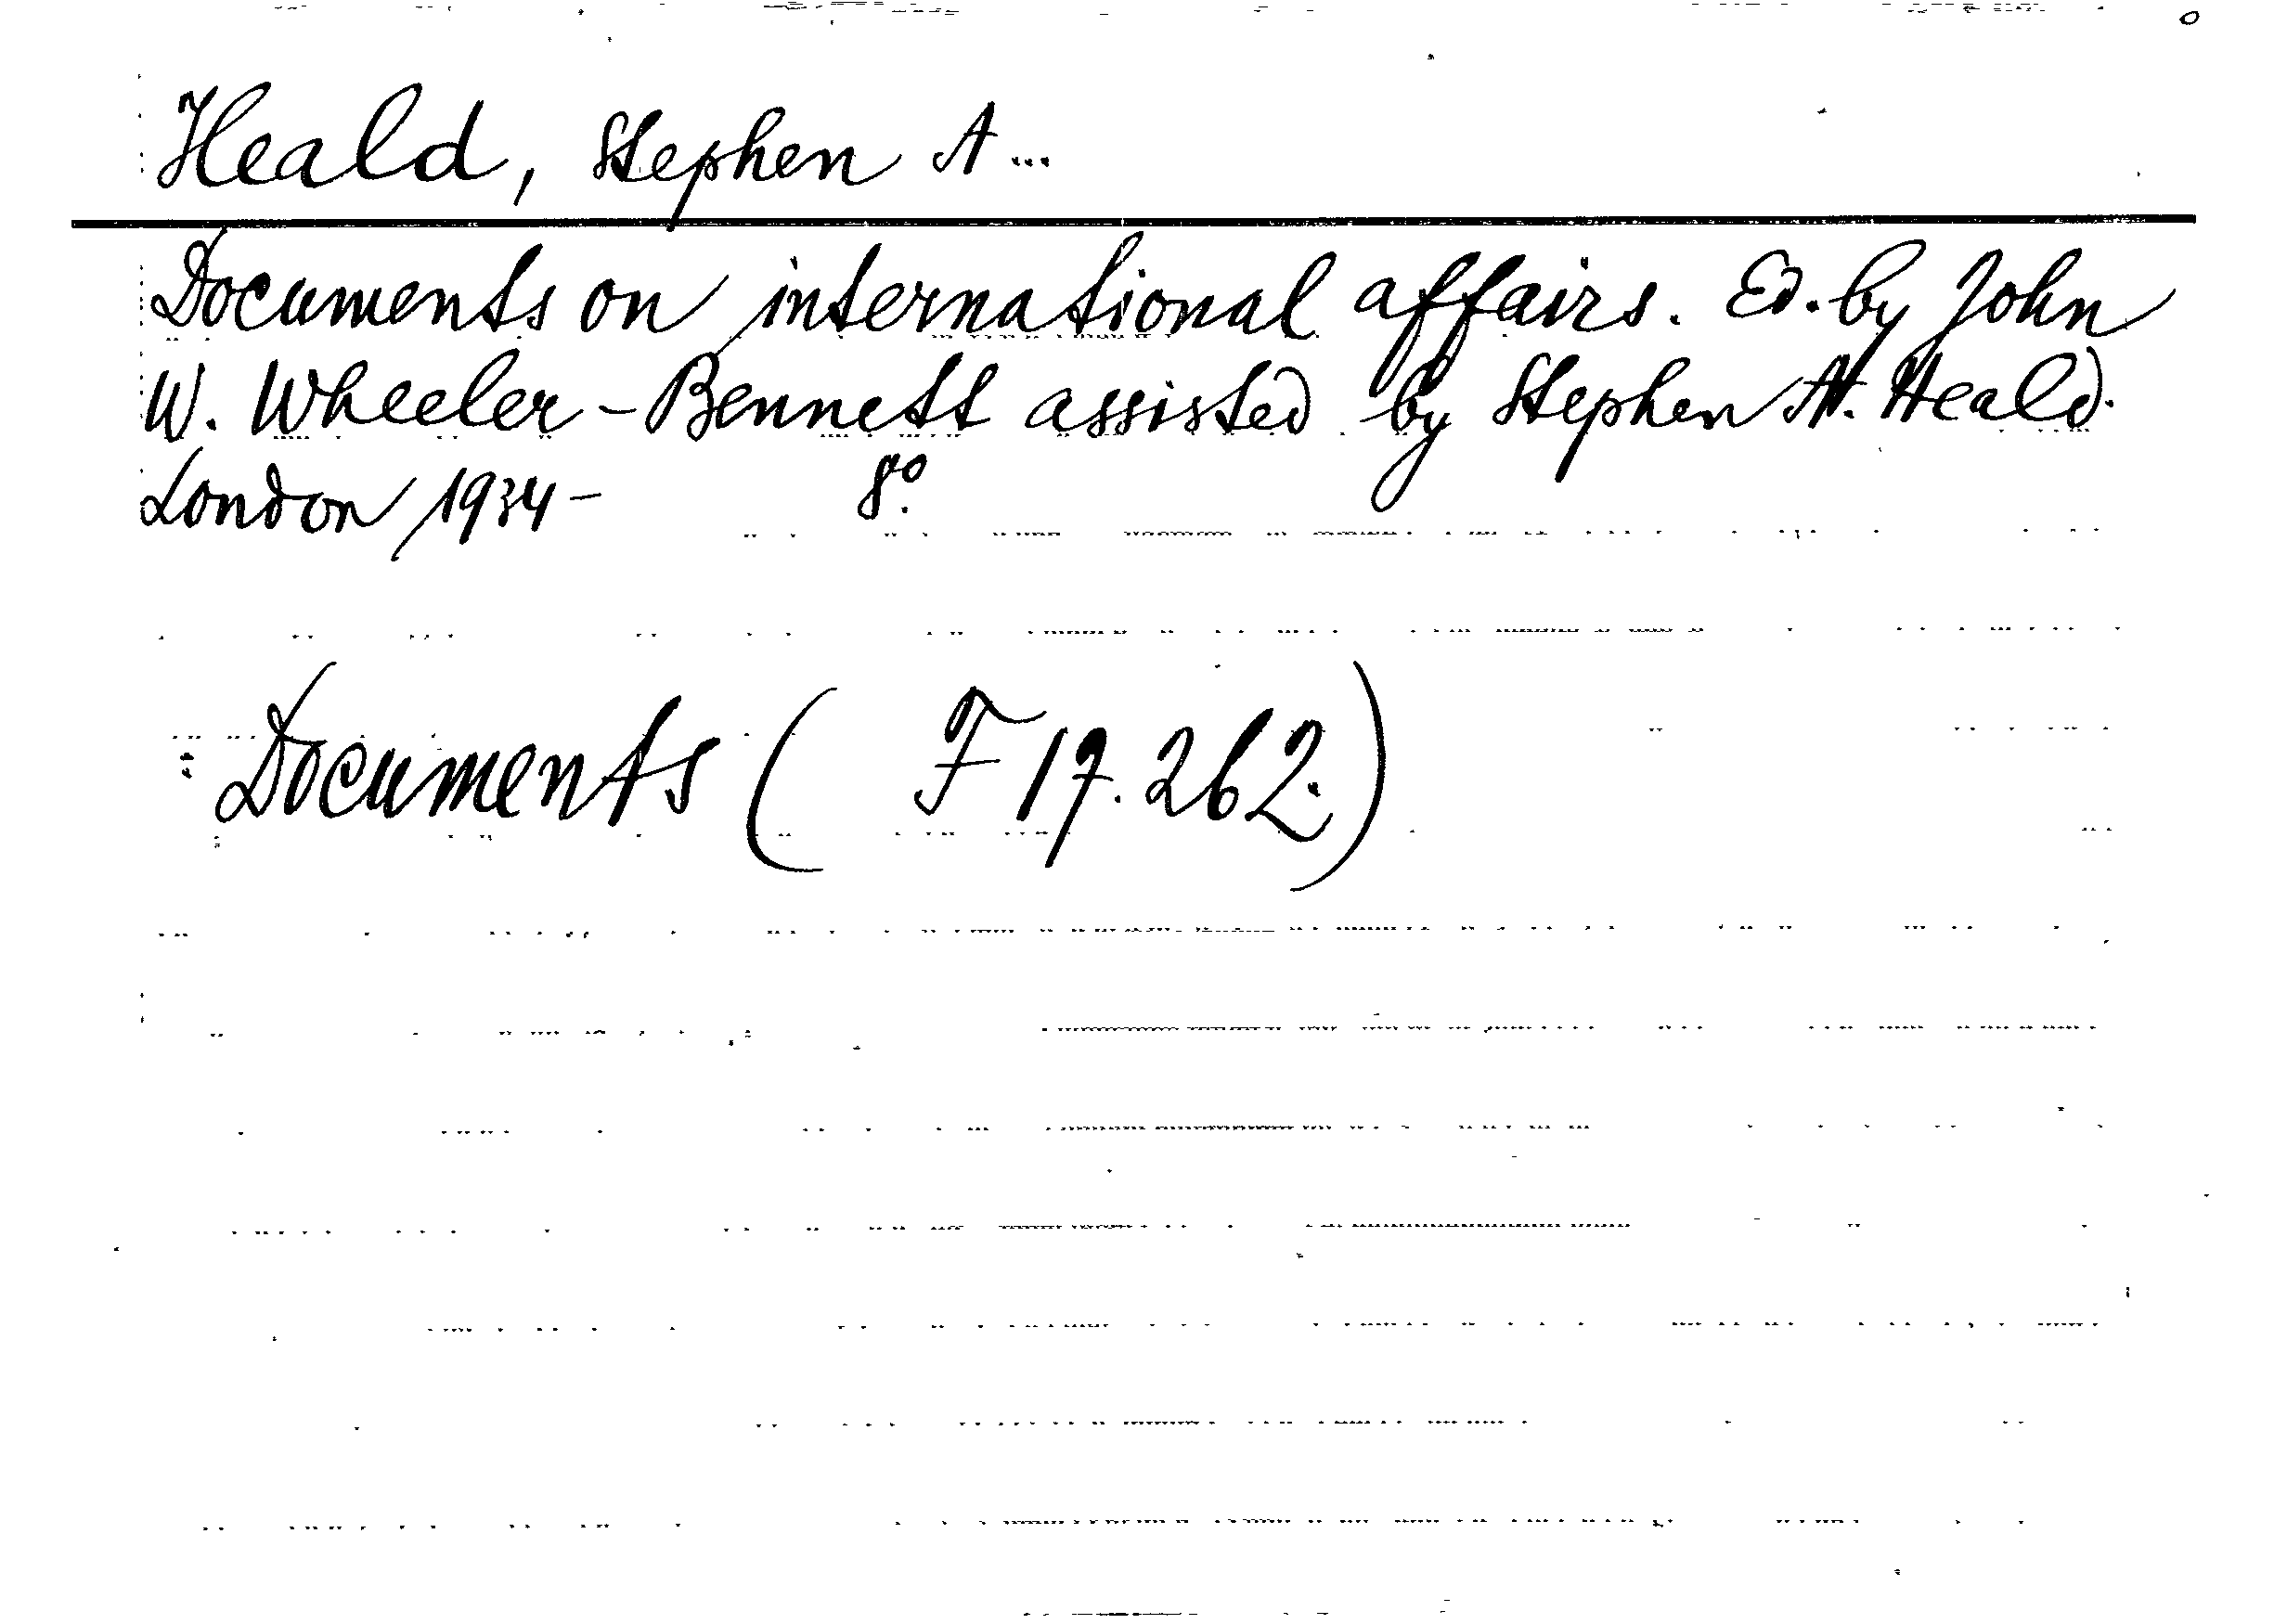 Heald, Stephen A...
Documents on international affairs. Ed. by John
W. Wheeler-Bennett assisted by Stephen A. Heald.
London 1934- 8º.
: Documents ( F 17.262.)